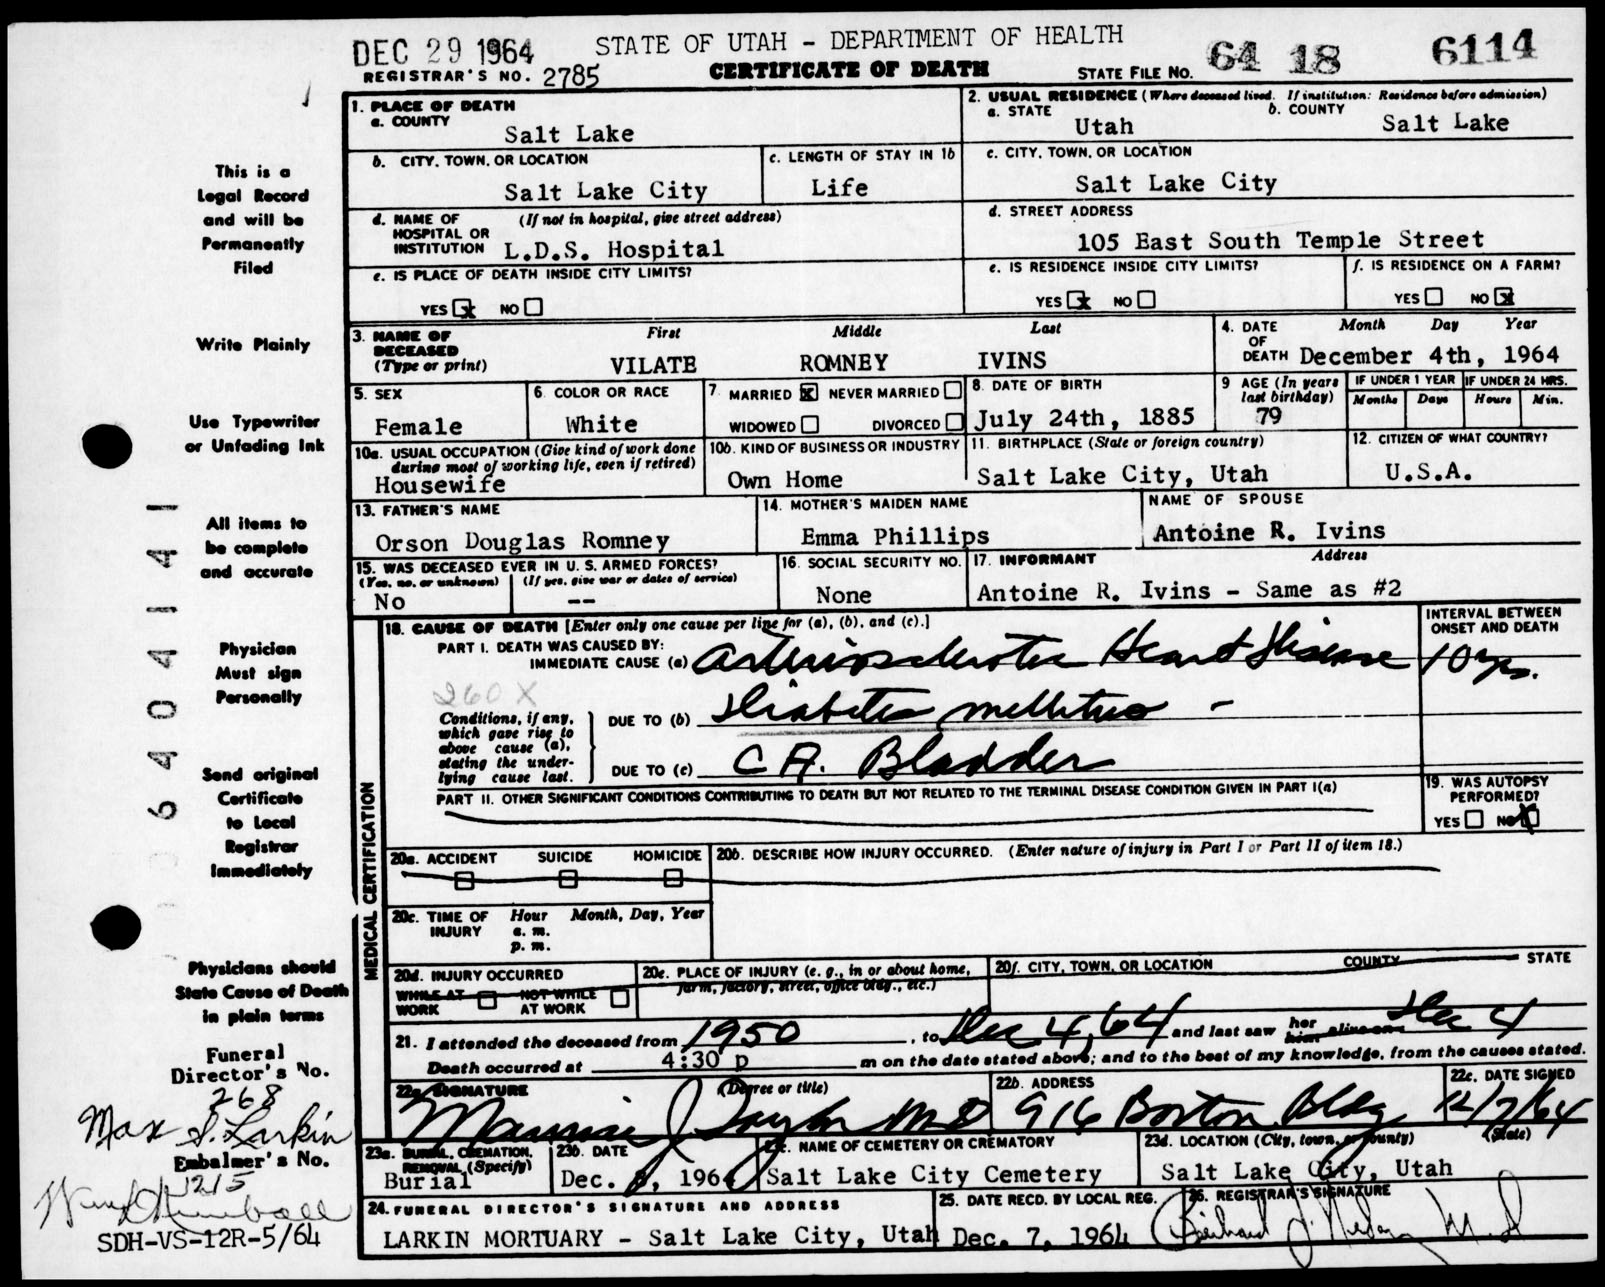 DEC 29 1964
STATE OF UTAH - DEPARTMENT OF HEALTH
CERTIFICATE OF DEATH
REGISTRAR'S NO. 2785
STATE FILE NO. 64 18 6114
This is a
Legal Record
and will be
Permanently
Filed
Write Plainly
Use Typewriter
or Unfading Ink
All items to
be complete
and accurate
Physician
Must sign
Personally
Send original
Certificate
to Local
Registrar
Immediately
Physicians should
State Cause of Death
in plain terms
Funeral
Director's No.
268
Max S. Larkin
Embalmer's No.
1215
SDH-VS-12R-5/64
64041441
1. PLACE OF DEATH
a. COUNTY
Salt Lake
2. USUAL RESIDENCE (Where deceased lived. If institution: Residence before admission)
a. STATE Utah
b. COUNTY Salt Lake
b. CITY, TOWN, OR LOCATION
Salt Lake City
c. LENGTH OF STAY IN 1b
Life
c. CITY, TOWN, OR LOCATION
Salt Lake City
d. NAME OF HOSPITAL OR INSTITUTION (If not in hospital, give street address)
L.D.S. Hospital
d. STREET ADDRESS
105 East South Temple Street
e. IS PLACE OF DEATH INSIDE CITY LIMITS?
YES x NO
e. IS RESIDENCE INSIDE CITY LIMITS?
YES x NO
f. IS RESIDENCE ON A FARM?
YES NO x
3. NAME OF DECEASED (Type or print)
First Middle Last
VILATE ROMNEY IVINS
4. DATE OF DEATH Month Day Year
December 4th, 1964
5. SEX
Female
6. COLOR OR RACE
White
7. MARRIED x NEVER MARRIED
WIDOWED DIVORCED
8. DATE OF BIRTH
July 24th, 1885
9 AGE (In years last birthday)
79
IF UNDER 1 YEAR
Months Days
IF UNDER 24 HRS.
Hours Min.
10a. USUAL OCCUPATION (Give kind of work done during most of working life, even if retired)
Housewife
10b. KIND OF BUSINESS OR INDUSTRY
Own Home
11. BIRTHPLACE (State or foreign country)
Salt Lake City, Utah
12. CITIZEN OF WHAT COUNTRY?
U.S.A.
13. FATHER'S NAME
Orson Douglas Romney
14. MOTHER'S MAIDEN NAME
Emma Phillips
NAME OF SPOUSE
Antoine R. Ivins
15. WAS DECEASED EVER IN U. S. ARMED FORCES?
(Yes, no, or unknown) (If yes, give war or dates of service)
No --
16. SOCIAL SECURITY NO.
None
17. INFORMANT Address
Antoine R. Ivins - Same as #2
MEDICAL CERTIFICATION
18. CAUSE OF DEATH [Enter only one cause per line for (a), (b), and (c).]
INTERVAL BETWEEN ONSET AND DEATH
PART I. DEATH WAS CAUSED BY:
IMMEDIATE CAUSE (a) Arteriosclerotic Heart Disease 10 yrs.
260 X
Conditions, if any, which gave rise to above cause (a), stating the underlying cause last.
DUE TO (b) Diabetes mellitus -
DUE TO (c) CA. Bladder
PART II. OTHER SIGNIFICANT CONDITIONS CONTRIBUTING TO DEATH BUT NOT RELATED TO THE TERMINAL DISEASE CONDITION GIVEN IN PART I(a)
19. WAS AUTOPSY PERFORMED?
YES NO X
20a. ACCIDENT SUICIDE HOMICIDE
20b. DESCRIBE HOW INJURY OCCURRED. (Enter nature of injury in Part I or Part II of item 18.)
20c. TIME OF INJURY Hour Month, Day, Year
a. m.
p. m.
20d. INJURY OCCURRED
WHILE AT WORK NOT WHILE AT WORK
20e. PLACE OF INJURY (e. g., in or about home, farm, factory, street, office bldg., etc.)
20f. CITY, TOWN, OR LOCATION COUNTY STATE
21. I attended the deceased from 1950, to Dec 4, 64 and last saw her him alive on Dec 4
Death occurred at 4:30 p m on the date stated above; and to the best of my knowledge, from the causes stated.
22a. SIGNATURE (Degree or title)
J Taylor MD
22b. ADDRESS
916 Boston Bldg
22c. DATE SIGNED
12/7/64
23a. BURIAL, CREMATION, REMOVAL (Specify)
Burial
23b. DATE
Dec. 8, 1964
23c. NAME OF CEMETERY OR CREMATORY
Salt Lake City Cemetery
23d. LOCATION (City, town, or county) (State)
Salt Lake City, Utah
24. FUNERAL DIRECTOR'S SIGNATURE AND ADDRESS
LARKIN MORTUARY - Salt Lake City, Utah
25. DATE RECD. BY LOCAL REG.
Dec. 7, 1964
26. REGISTRAR'S SIGNATURE